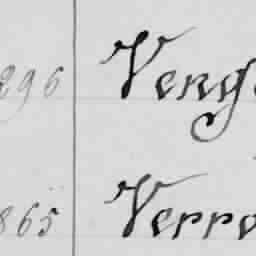 296 Veng
865 Verro